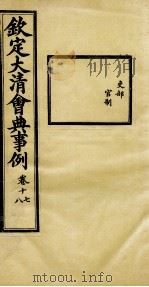 欽定大清會典事例
卷十七
十八
吏部
官制